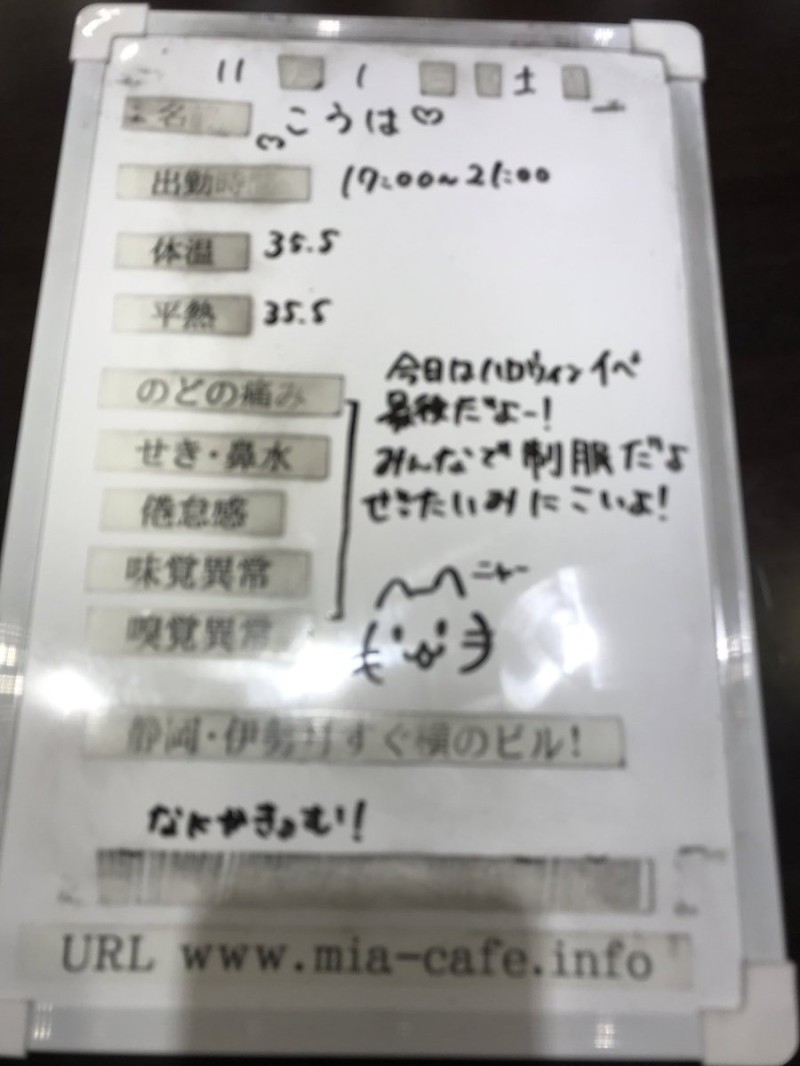 11 月 1 日 土
名 こうは♡
出勤時 17:00~21:00
体温 35.5
平熱 35.5
のどの痛み
せき・鼻水
倦怠感
味覚異常
嗅覚異常
今日はハロウィンイベ
最後だよー!
みんなで制服だよ
ぜったいみにこいよ!
ニャー
静岡・伊勢丹すぐ横のビル!
URL www.mia-cafe.info